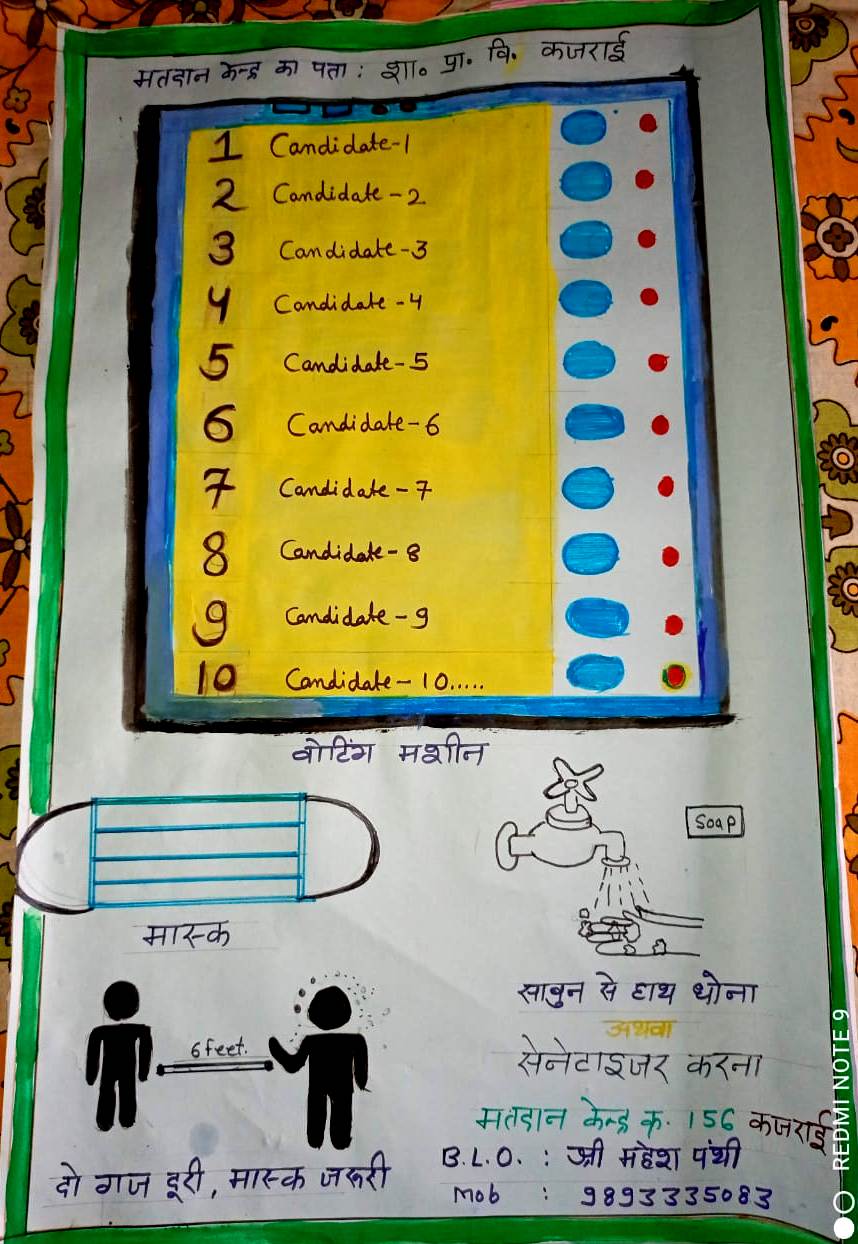 मतदान केन्द्र का पता : शा० प्रा० वि. कजराई
1 Candidate-1
2 Candidate - 2
3 Candidate -3
4 Candidate -4
5 Candidate - 5
6 Candidate - 6
7 Candidate - 7
8 Candidate - 8
9 Candidate - 9
10 Candidate - 10.....
वोटिंग मशीन
Soap
मास्क
साबुन से हाथ धोना
अथवा
सेनेटाइजर करना
6 feet.
दो गज दूरी, मास्क जरूरी
मतदान केन्द्र क्र. 156 कजराई
B.L.O. : श्री महेश पंथी
Mob : 9893335083
REDMI NOTE 9